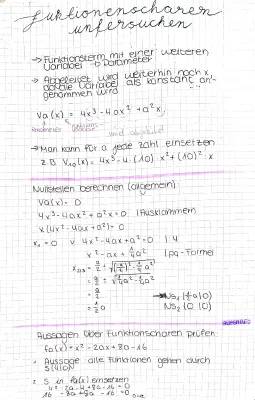 Funktionenscharen
untersuchen
→ Funktionsterm mit einer weiteren
Variabel → Parameter
→ Abgeleitet wird weiterhin nach x
Variable als konstant an-
genommen wird
Va(x) = 4x³ - 4ax² + a²x
Parameter
wird abgeleitet
→ Man kann für a jede Zahl einsetzen
z.B. V₁₀(x) = 4x³ - 4·(10)·x² + (10)²·x
Nullstellen berechnen (allgemein)
Va(x) = 0
4x³ - 4ax² + a²x = 0 | Ausklammern
x(4x² - 4ax + a²) = 0
x₁ = 0 v 4x² - 4ax + a² = 0 | :4
x² - ax + ¼a² | pq-Formel
= a/2
= ½a
→ Ns₁ (½a|0)
Ns₂ (0|0)
Aussagen über Funktionscharen prüfen
fa(x) = x² - 2ax + 8a - 16
1. Aussage alle Funktionen gehen durch
S(4|0)
2. S in fa(x) einsetzen
4² - 2a·4 + 8a - 16 = 0
16 - 8a + 8a - 16 = 0